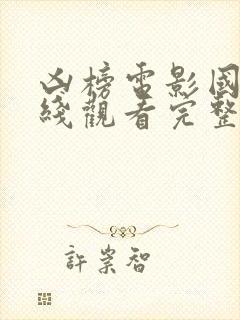 凶榜電影國
綫觀看完整
許崇智